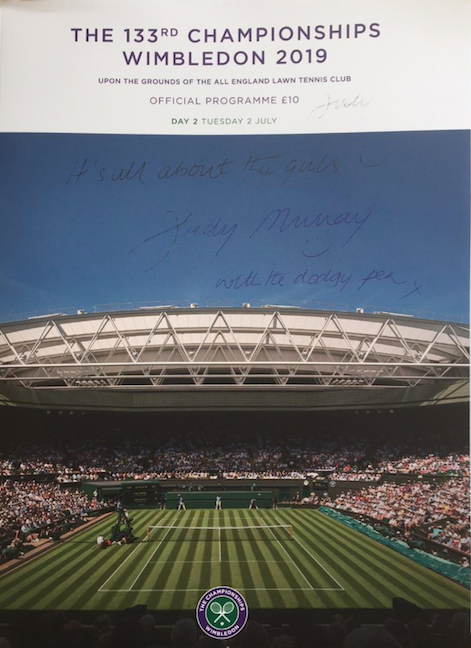 THE 133RD CHAMPIONSHIPS
WIMBLEDON 2019
UPON THE GROUNDS OF THE ALL ENGLAND LAWN TENNIS CLUB
OFFICIAL PROGRAMME £10
DAY 2 TUESDAY 2 JULY
It's all about the girls
Judy Murray
with the dodgy pen x
THE CHAMPIONSHIPS
WIMBLEDON